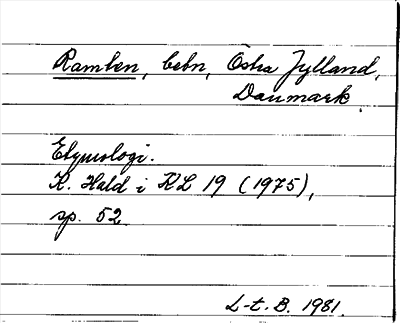 Ramten, bebn, Östra Jylland,
Danmark.
Etymologi.
K. Hald i KL 19 (1975),
sp. 52.
L-t. B. 1981.